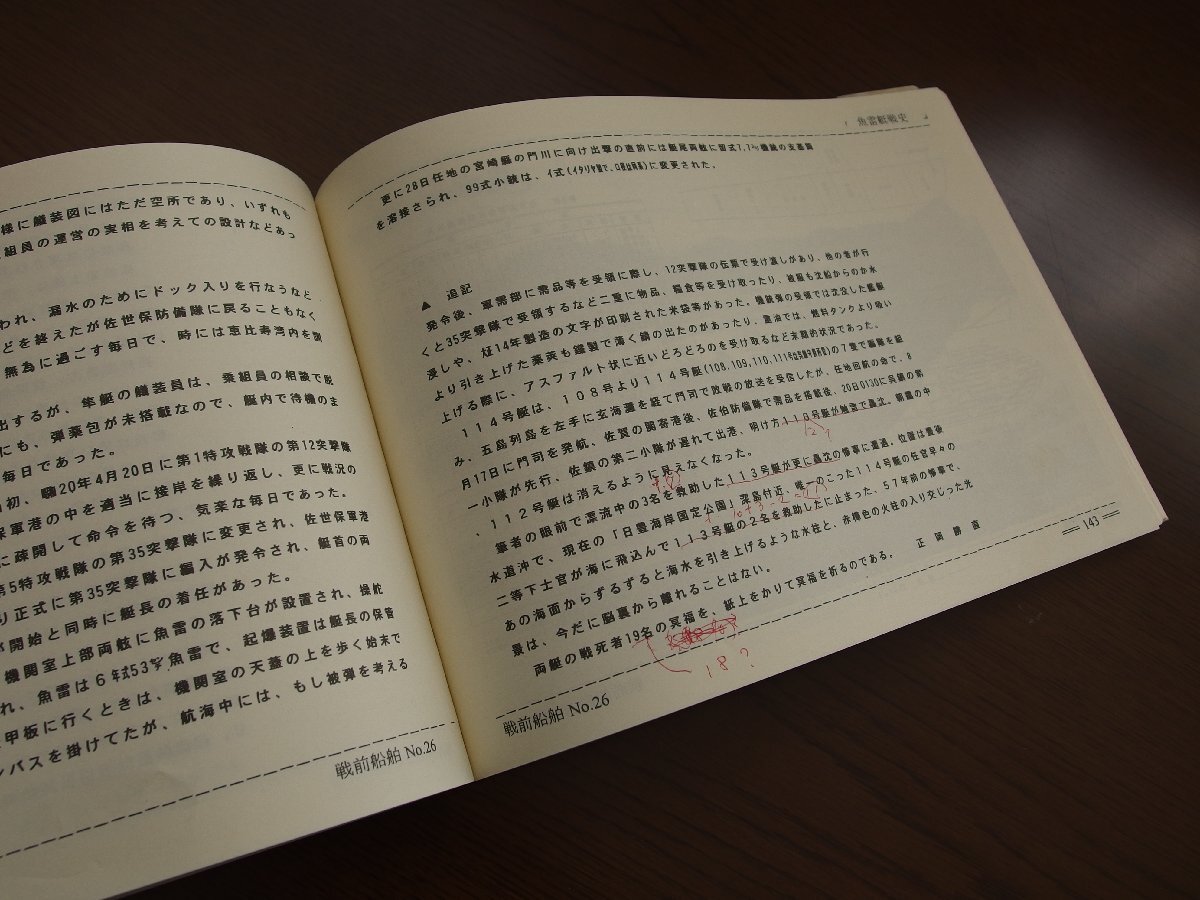 様に艤装図にはただ空所であり、いずれも
組員の運営の実相を考えての設計などあっ
われ、漏水のためにドック入りを行なうなど
どを終えたが佐世保防備隊に戻ることもなく
無為に過ごす毎日で、時には恵比寿湾内を
出するが、隼艇の艤装員は、乗組員の相談で脱
にも、弾薬包が未搭載なので、艇内で待機のま
毎日であった。
初、昭20年4月20日に第1特攻戦隊の第12突撃隊
保軍港の中を適当に接岸を繰り返し、更に戦況の
に疎開して命令を待つ、気楽な毎日であった。
第5特攻戦隊の第35突撃隊に変更され、佐世保軍港
り正式に第35突撃隊に編入が発令され、艇首の両
が開始と同時に艇長の着任があった。
機関室上部両舷に魚雷の落下台が設置され、操舵
れ、魚雷は6年式53㌢魚雷で、起爆装置は艇長の保管
甲板に行くときは、機関室の天蓋の上を歩く始末で
ンバスを掛けてたが、航海中には、もし被弾を考える
戦前船舶 No.26
魚雷艇戦史
更に28日任地の宮崎縣の門川に向け出撃の直前には艇尾両舷に留式7.7㍉機銃の支基筒
を溶接さられ、99式小銃は、イ式(イタリヤ製で、口径は同系)に変更された。
▲ 追記
発令後、軍需部に需品等を受領に際し、12突撃隊の伝票で受け渡しがあり、他の者が行
くと35突撃隊で受領するなど二重に物品、糧食等を受け取ったり、被服も沈船からのか水
浸しや、昭14年製造の文字が印刷された米袋等があった。機銃弾の受領では沈没した艦艇
より引き上げた薬莢も鐵製で薄く錆の出たのがあったり、重油では、燃料タンクより吸い
上げる際に、アスファルト状に近いどろどろのを受け取るなど末期的状況であった。
114号艇は、108号より114号艇(108,109,110,111号は川棚臨時魚雷艇訓練所)の7隻で編隊を組
み、五島列島を左手に玄海灘を経て門司で敗戦の放送を受信したが、任地回航の命で、8
月17日に門司を発航、佐賀の関寄港後、佐伯防備隊で需品を搭載後、20日0130に呉鎮の第
一小隊が先行、佐鎮の第二小隊が遅れて出港、明け方110号艇が触雷で轟沈。朝霧の中
12?
、112号艇は消えるように見えなくなった。
筆者の眼前で漂流中の3名を救助した113号艇が更に轟沈の惨事に遭遇。位置は豊後
水道沖で、現在の「日豊海岸国定公園」深島付近、唯一のこった114号艇の任官早々の
二等下士官が海に飛込んで113号艇の2名を救助したに止まった、57年前の惨事で、
あの海面からずるずると海水を引き上げるような水柱と、赤橙色の火柱の入り交じった光
景は、今だに脳裏から離れることはない。
両艇の戦死者19名の冥福を、紙上をかりて冥福を祈るのである。 正岡勝直
18?
143
戦前船舶 No.26